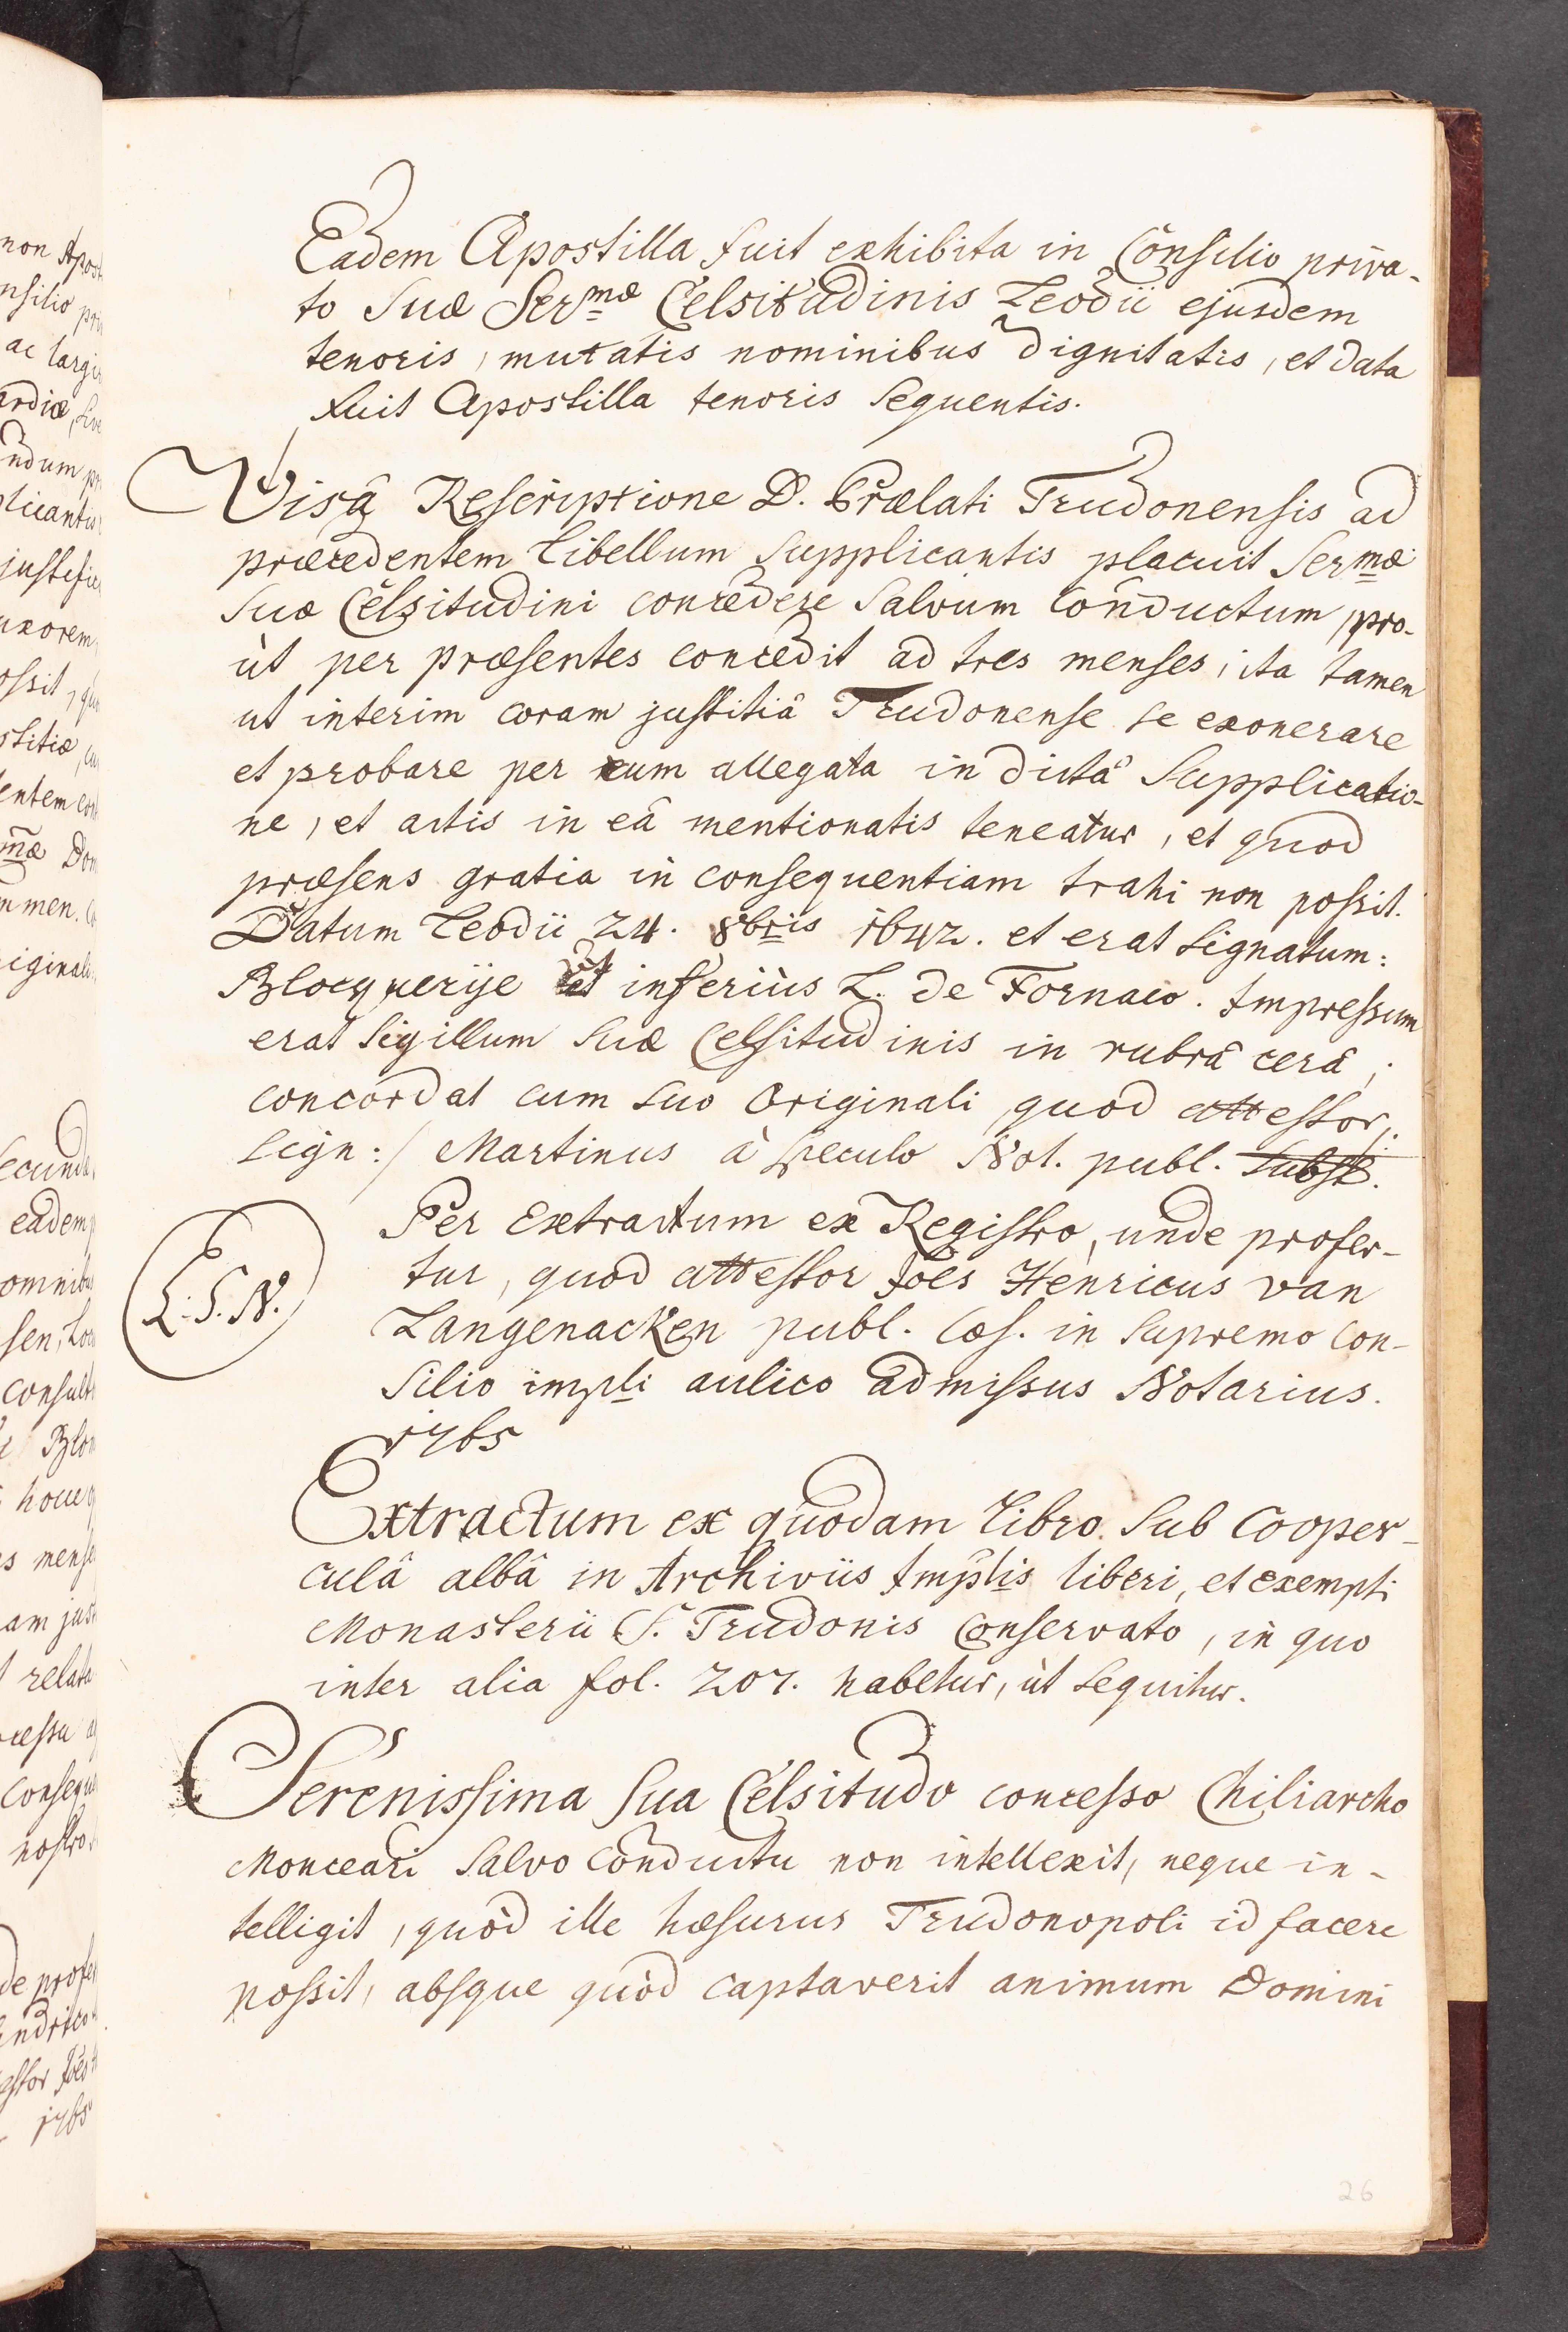 Eadem Apostilla fuit exhibita in Consilio priva-
to Suæ Ser.mæ Celsitudinis Leodii ejusdem
tenoris, mutatis nominibus dignitatis, et data
fuit Apostilla tenoris sequentis.
Visâ Rescriptione D. Prælati Trudonensis ad
præcedentem libellum supplicantis placuit Sermæ
Suæ Celsitudini concedere salvum conductum, pro-
ùt per præsentes concedit ad tres menses, ita tamen
ut interim coram justitiâ Trudonense se exonerare
et probare per eum allegata in dictâ Supplicatio-
ne, et actis in eâ mentionatis teneatur, et quod
præsens gratia in consequentiam trahi non possit.
Datum Leodii 24. 8bris 1642. et erat signatum:
Blocquerije et inferiùs L. de Fornaco. Impressum
erat sigillum suæ Celsitudinis in rubrâ cerâ;
concordat cum suo Originali quod attestor,
sign:/ Martinus à Speculo Not. publ. subst.
Per extractum ex Registro, unde profer-
tur, quod attestor Joes Henricus van
Langenacken publ. Cæs. in supremo con-
silio impli aulico admissus Notarius.
1765
L. S. N.
Extractum ex quodam libro sub cooper-
culâ albâ in Archiviis Implis liberi, et exempti
Monasterii S. Trudonis conservato, in quo
inter alia fol. 207. habetur, ùt sequitur.
Serenissima Sua Celsitudo concesso Chiliarcho
Monceari salvo conductu non intellexit, neque in-
telligit, quòd ille hæsurus Trudonopoli id facere
possit, absque quòd captaverit animum Domini
26
non Apost
nsilio pri
ac largi
ardiæ, sive
ndum pr
plicantis
justific
uxorem
ossit, qu
stitiæ, cu
entem con
mæ Dom
n men. C
iginali
secund
eadem
omnibu
sen, Lo
consult
Blo
houe
s mense
am jus
relata
cessu a
conseque
nostro
de profer
endrico
estor Joes H
1765